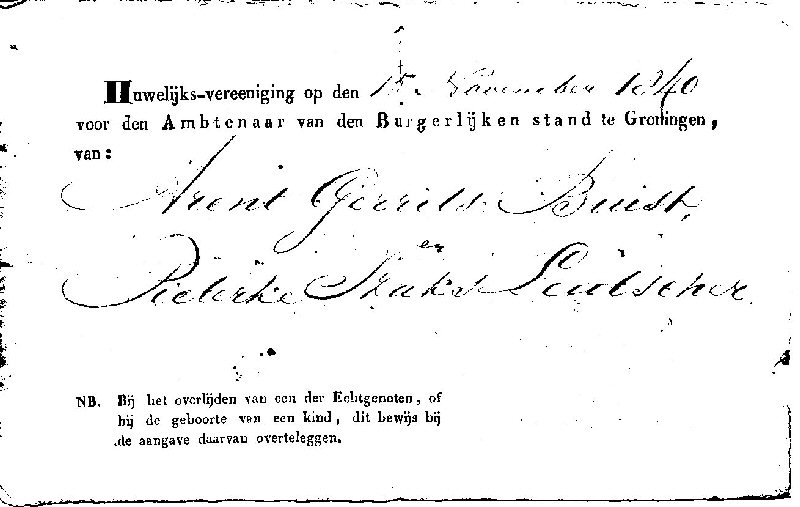 Huwelijks-vereeniging op den 15 November 1840
voor den Ambtenaar van den Burgerlijken stand te Groningen,
van:
Arent Gerrits Buist,
en
Pieterke Izaks Leutscher
NB. Bij het overlijden van een der Echtgenoten, of
bij de geboorte van een kind, dit bewijs bij
de aangave daarvan overteleggen.